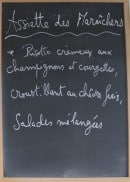 Assiette des Maraîchers
* Risotto crémeux aux
champignons et courgettes,
croust. llant au chèvre frais,
Salades mélangées